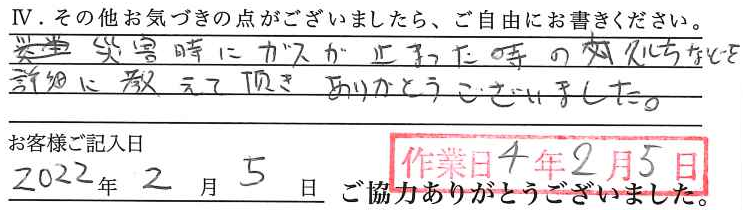 Ⅳ. その他お気づきの点がございましたら、ご自由にお書きください。
災害時にガスが止まった時の対処など
詳細に教えて頂きありがとうございました。
お客様ご記入日
2022年 2月 5日
作業日 4年2月5日
ご協力ありがとうございました。